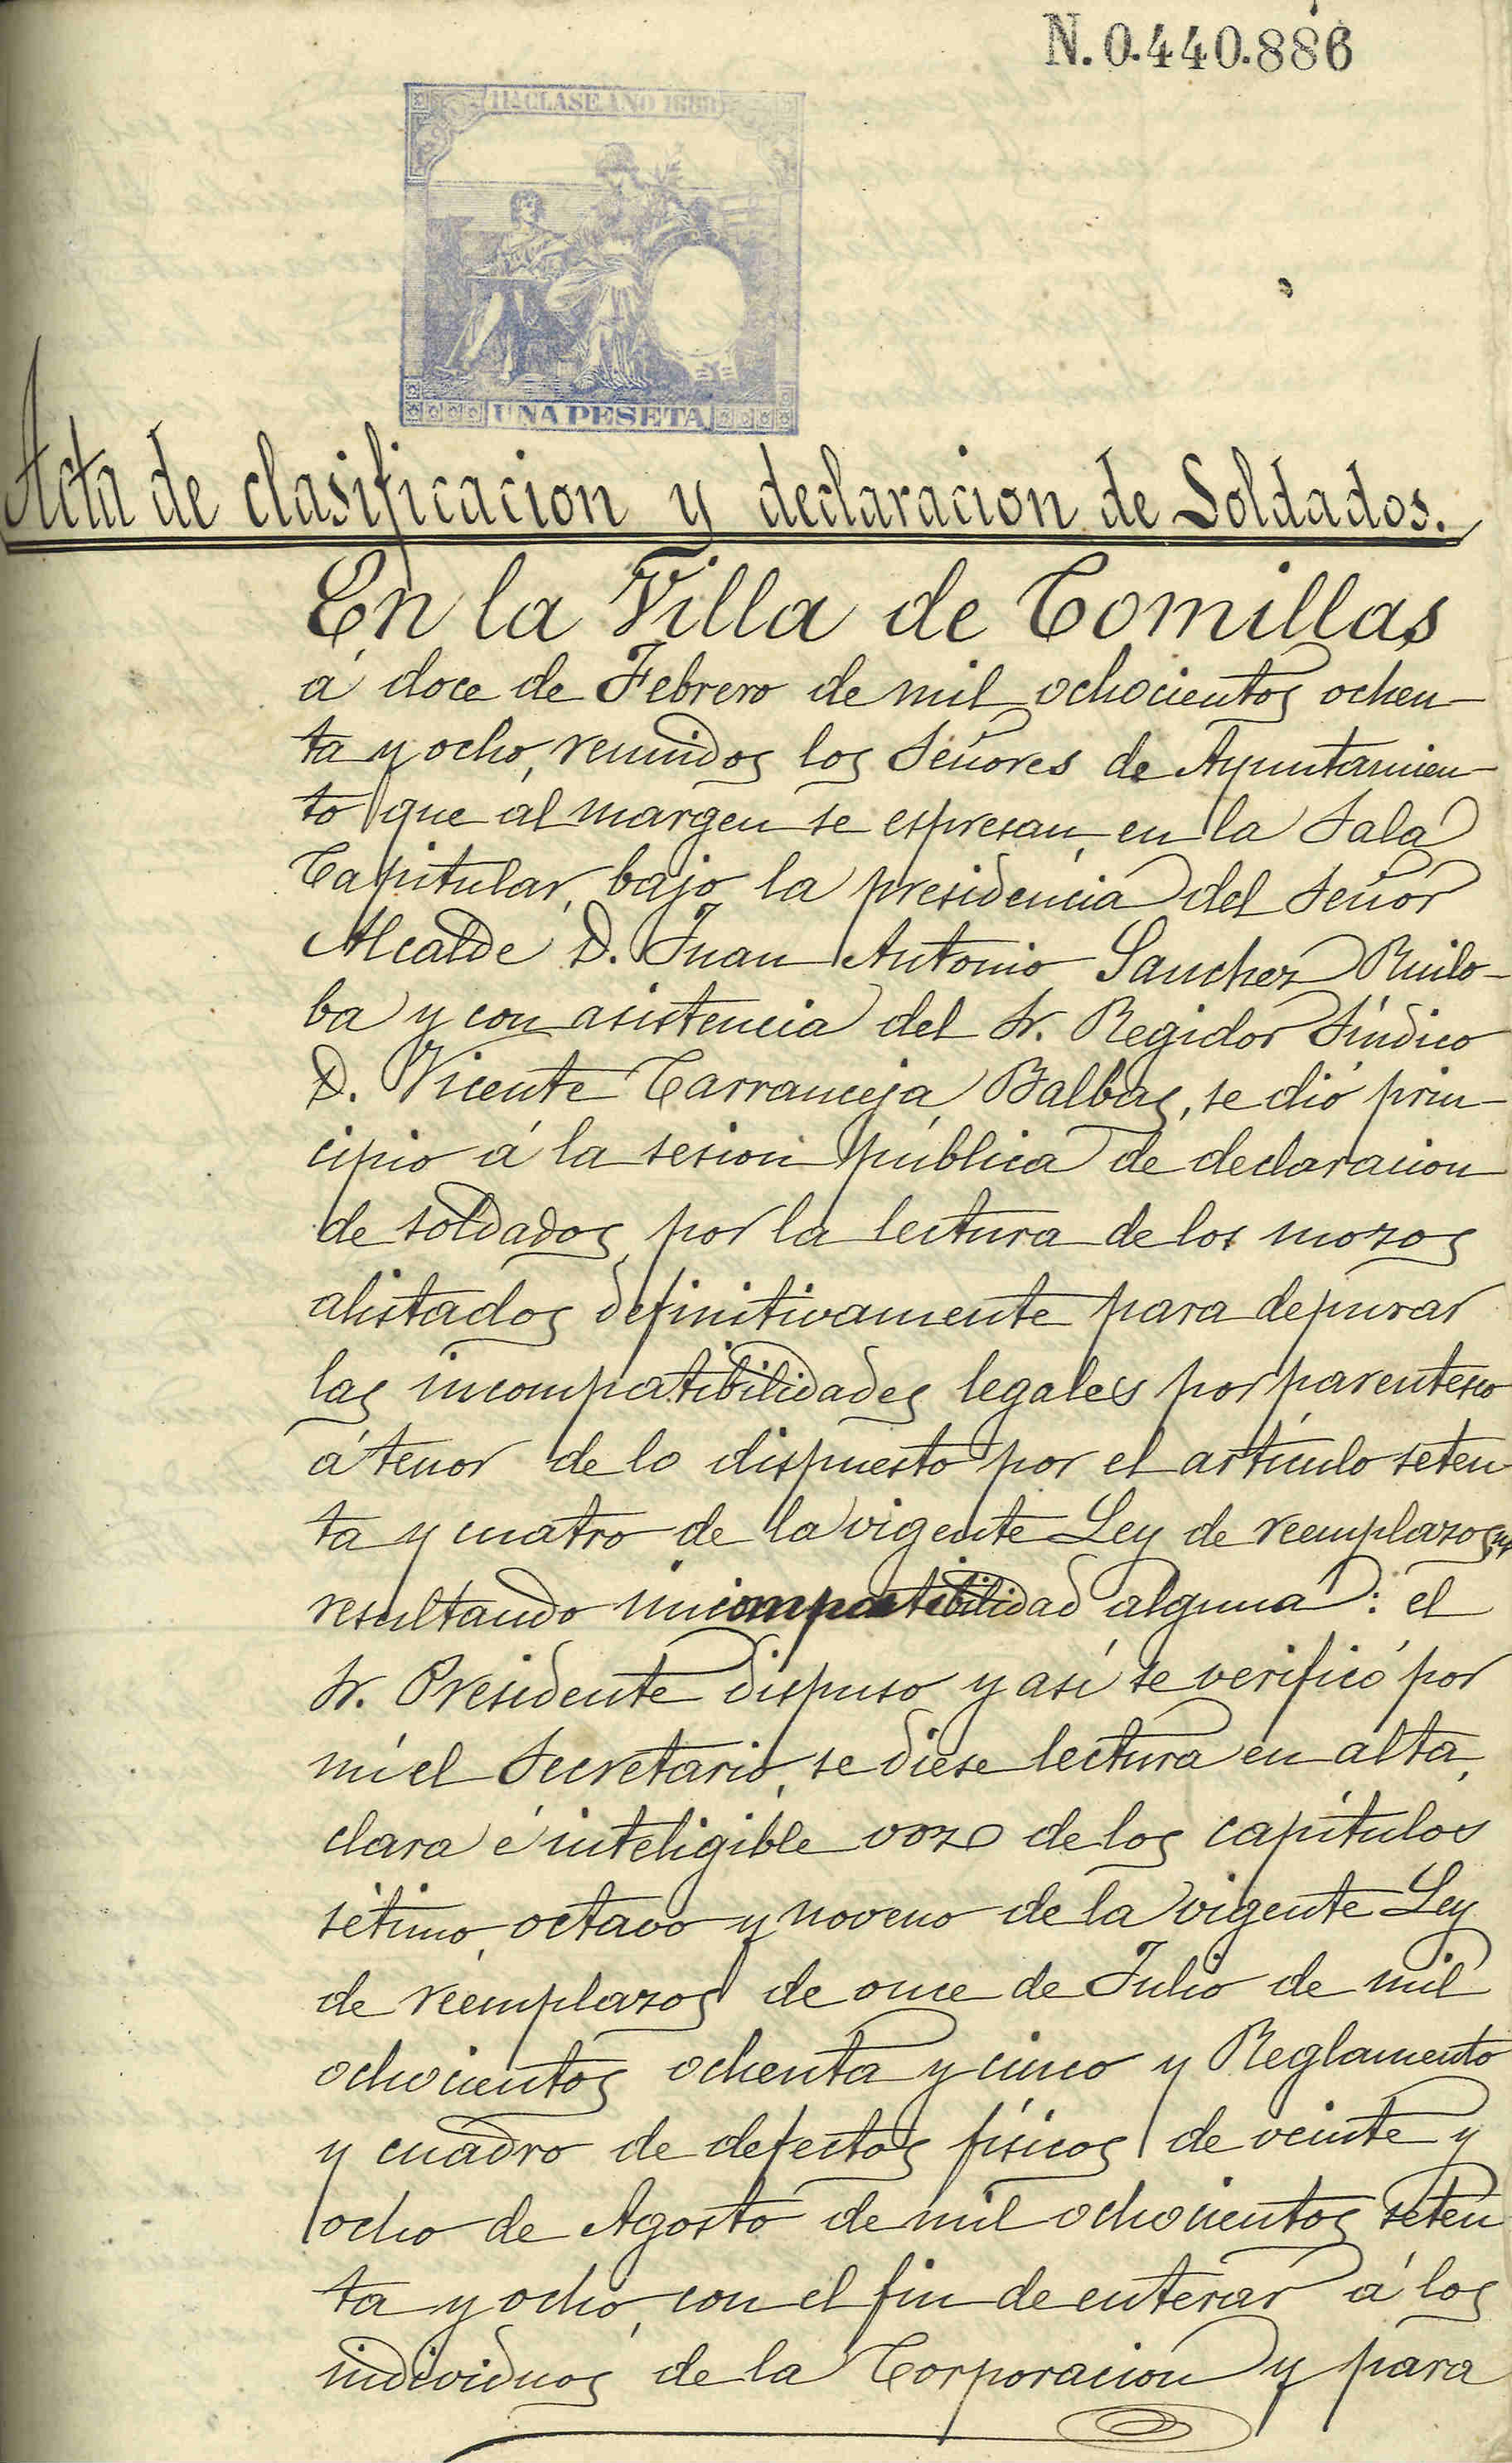 N. 0.440.886
11ª CLASE AÑO 1888
UNA PESETA
Acta de clasificacion y declaracion de Soldados.
En la Villa de Comillas
á doce de Febrero de mil ochocientos ochen-
ta y ocho, reunidos los Señores de Ayuntamien-
to que al margen se espresan, en la Sala
Capitular, bajo la presidencia del Señor
Alcalde D. Juan Antonio Sanchez Ruilo-
ba y con asistencia del Sr. Regidor Síndico
D. Vicente Carranceja Balbas, se dió prin-
cipio á la sesion pública de declaracion
de soldados, por la lectura de los mozos
alistados definitivamente para depurar
las incompatibilidades legales por parentesco
á tenor de lo dispuesto por el artículo seten-
ta y cuatro de la vigente Ley de reemplazos,
resultando incompatibilidad alguna: el
Sr. Presidente dispuso y así se verificó por
mí el Secretario, se diese lectura en alta,
clara é inteligible voz de los capítulos
sétimo, octavo y noveno de la vigente Ley
de reemplazos de once de Julio de mil
ochocientos ochenta y cinco y Reglamento
y cuadro de defectos físicos de veinte y
ocho de Agosto de mil ochocientos seten
ta y ocho, con el fin de enterar á los
individuos de la Corporacion y para